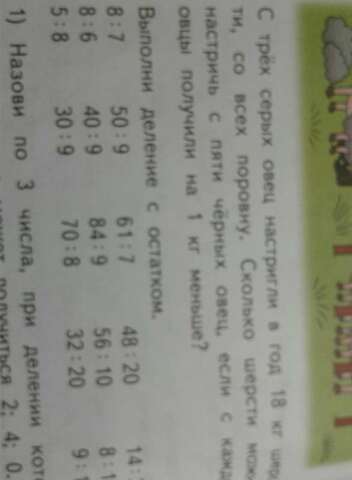 С трёх серых овец настригли в год 18 кг
ти, со всех поровну. Сколько шерсти
настричь с пяти чёрных овец, если с
овцы получили на 1 кг меньше?
Выполни деление с остатком.
8 : 7 50 : 9 61 : 7 48 : 20
8 : 6 40 : 9 84 : 9 56 : 10
5 : 8 30 : 9 70 : 8 32 : 20
1) Назови по 3 числа, при делении
получиться 2; 4; 0.